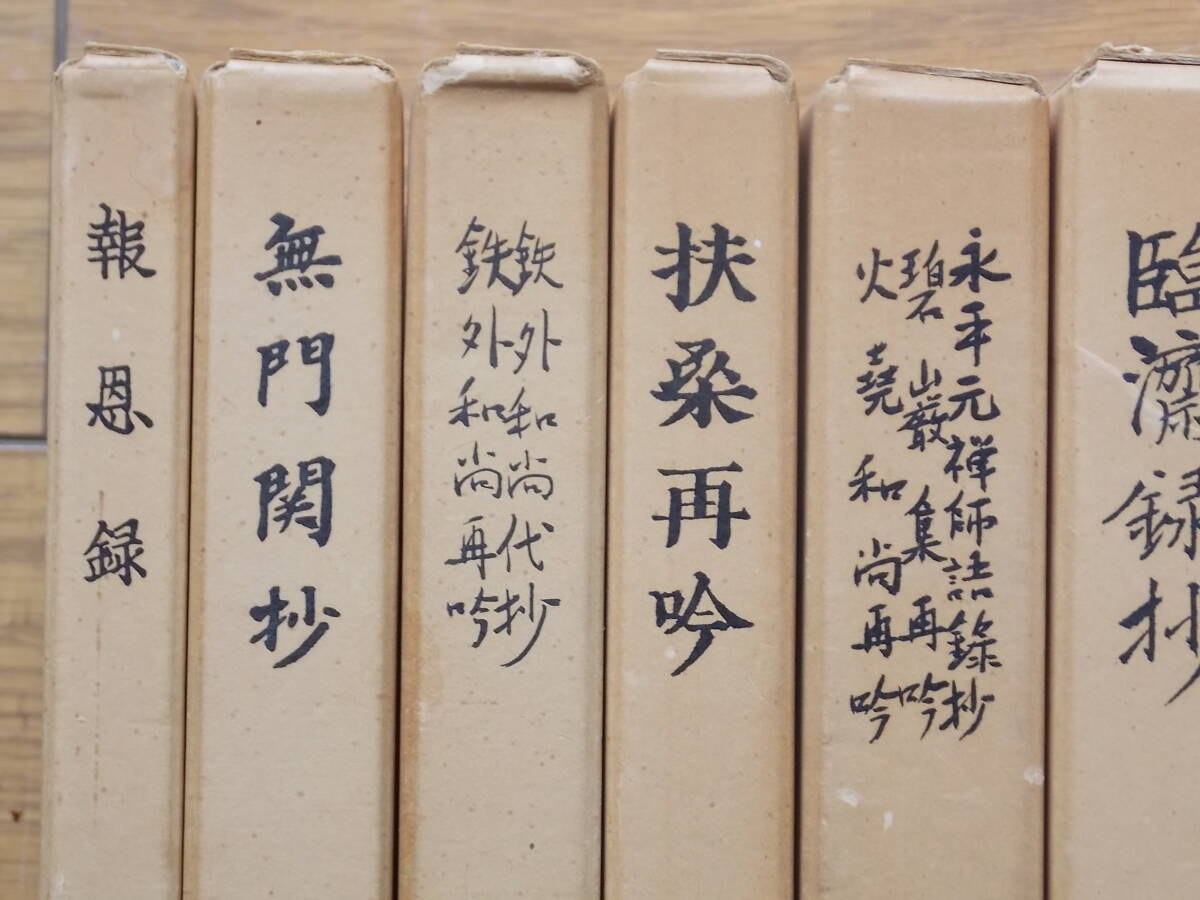 報恩録
無門関抄
鉄外和尚代抄
鉄外和尚再吟
扶桑再吟
永平元禅師語錄抄
碧巌集再吟
火堯和尚再吟
臨濟録抄